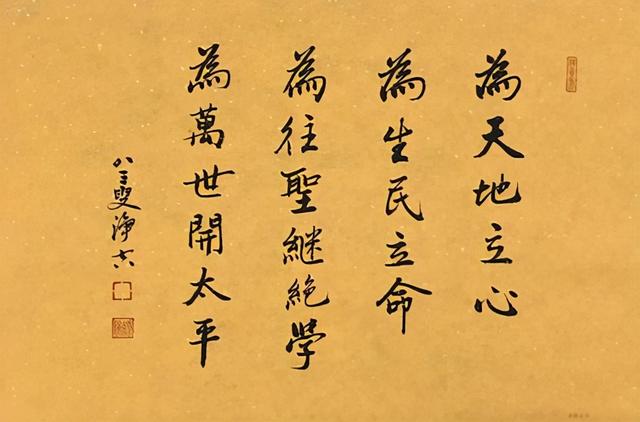 為天地立心
為生民立命
為往聖繼絶學
為萬世開太平
八二叟淨空